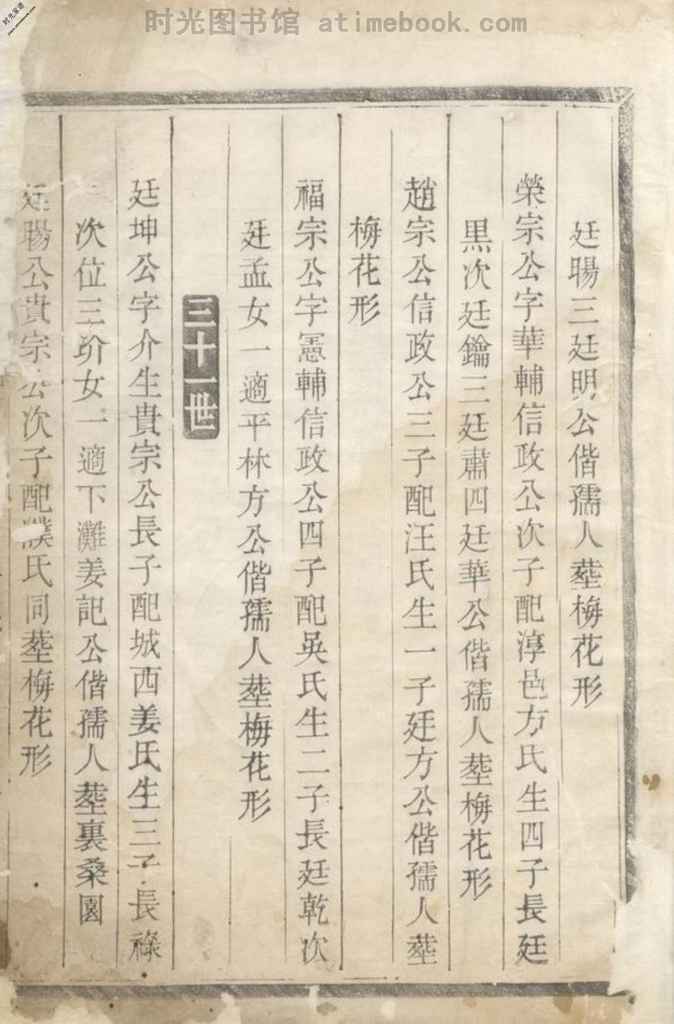 时光图书馆 atimebook.com
时光家谱
廷暘三廷明公偕孺人塟梅花形
榮宗公字華輔信政公次子配淳邑方氏生四子長廷
黒次廷鑰三廷肅四廷華公偕孺人塟梅花形
趙宗公信政公三子配汪氏生一子廷方公偕孺人塟
梅花形
福宗公字憲輔信政公四子配吳氏生二子長廷乾次
廷孟女一適平林方公偕孺人塟梅花形
三十一世
廷坤公字介生貴宗公長子配城西姜氏生三子長祿
次位三玠女一適下灘姜記公偕孺人塟裏桑園
廷暘公貴宗公次子配濮氏同塟梅花形